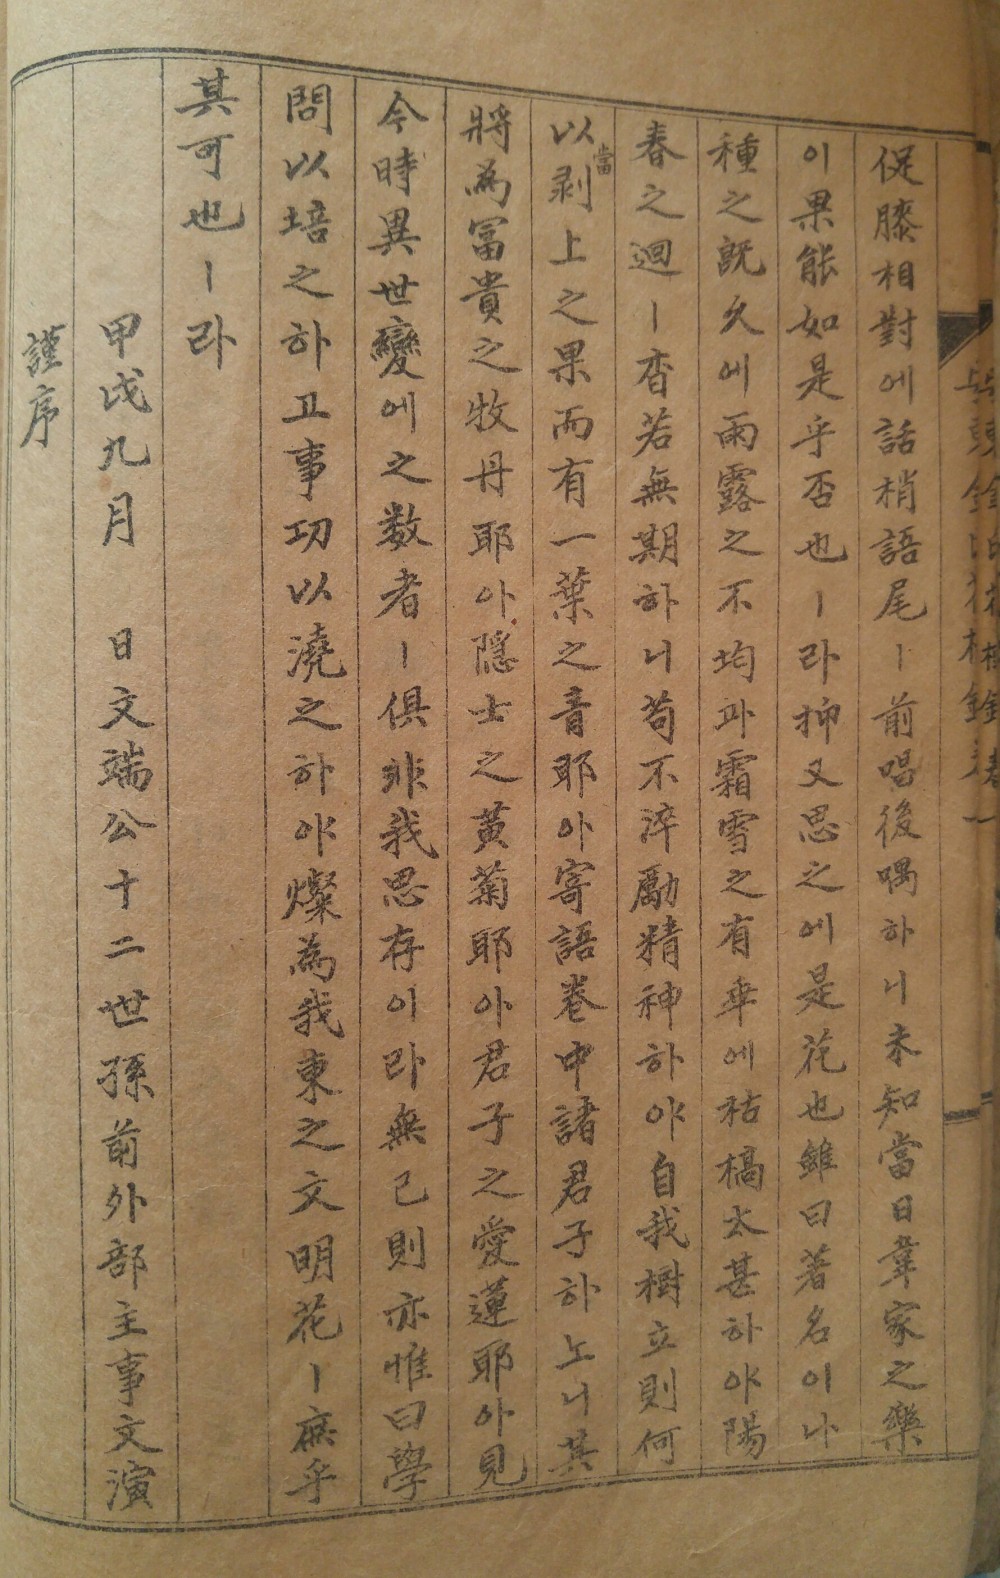 促膝相對에話梢語尾ㅣ前唱後喁하니未知當日韋家之樂
이果能如是乎否也ㅣ라抑又思之에是花也雖曰著名이나
種之旣久에雨露之不均과霜雪之有幸에枯槁太甚하야陽
春之迴ㅣ杳若無期하니苟不淬勵精神하야自我樹立則何
以當剥上之果而有一葉之靑耶아寄語卷中諸君子하노니其
將為冨貴之牧丹耶아隱士之黃菊耶아君子之愛蓮耶아見
今時異世變에之数者ㅣ俱非我思存이라無已則亦惟曰學
問以培之하고事功以澆之하야燦為我東之文明花ㅣ庶乎
其可也ㅣ라
甲戌九月 日文端公十二世孫前外部主事文演
謹序